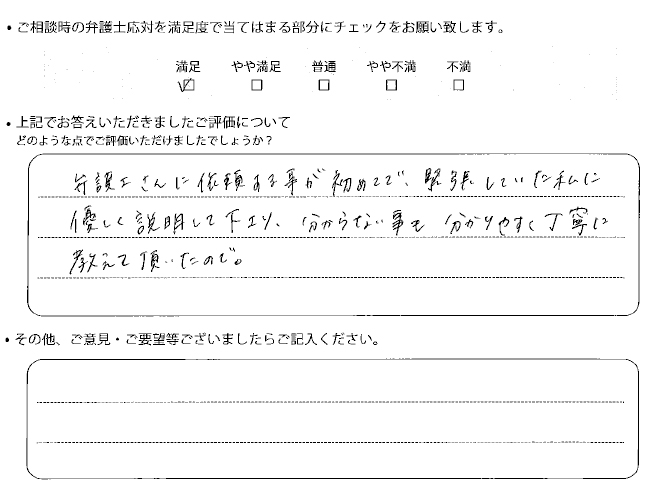 ・ご相談時の弁護士応対を満足度で当てはまる部分にチェックをお願い致します。
満足 やや満足 普通 やや不満 不満
☑ □ □ □ □
・上記でお答えいただきましたご評価について
どのような点でご評価いただけましたでしょうか?
弁護士さんに依頼する事が初めてで、緊張していた私に
優しく説明して下さり、分からない事も分かりやすく丁寧に
教えて頂いたので。
・その他、ご意見・ご要望等ございましたらご記入ください。